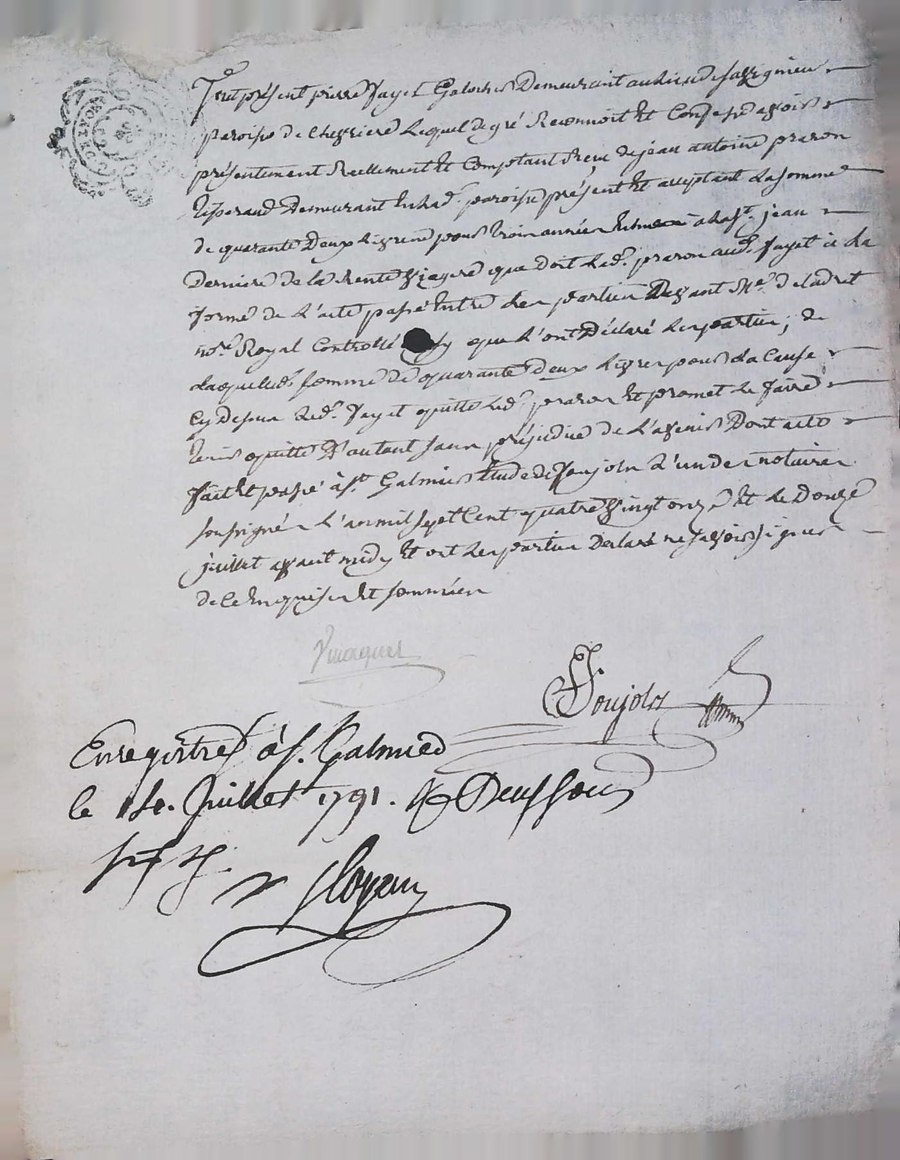 fut présent pierre fayet Galochier Demeurant au lieu de
paroisse de chevriere Lequel de gré Reconnoit Et Confesse avoir
présentement Réellement Et Comptant Reçu de jean antoine praron
Demeurant En lad. paroisse présent Et acceptant La somme
de quarante Deux Livres pour trois années Echues à la st. jean
Derniere de La Rente viagere que Doit Led. praron aud. fayet à la
forme de L'acte passé Entre Les parties Devant Me. Deladret
nore. Royal Controllé que L'ont Déclaré Les parties; de
Laquelle somme de quarante Deux Livres pour La Cause
Cy Dessus Led. fayet quitte Led. praron Et promet Le faire
tenir quitte D'autant sans préjudice de L'avenir Dont acte
fait Et passé à st. Galmier Etude de Poujols L'un des notaires
soussignés L'an mil sept Cent quatre vingt onze Et Le Douze
juillet avant midy Et ont Les parties Déclaré ne savoir signer
de Ce Enquises Et sommées
Poujols
Enregistré à st. Galmier
le 14. Juillet 1791.